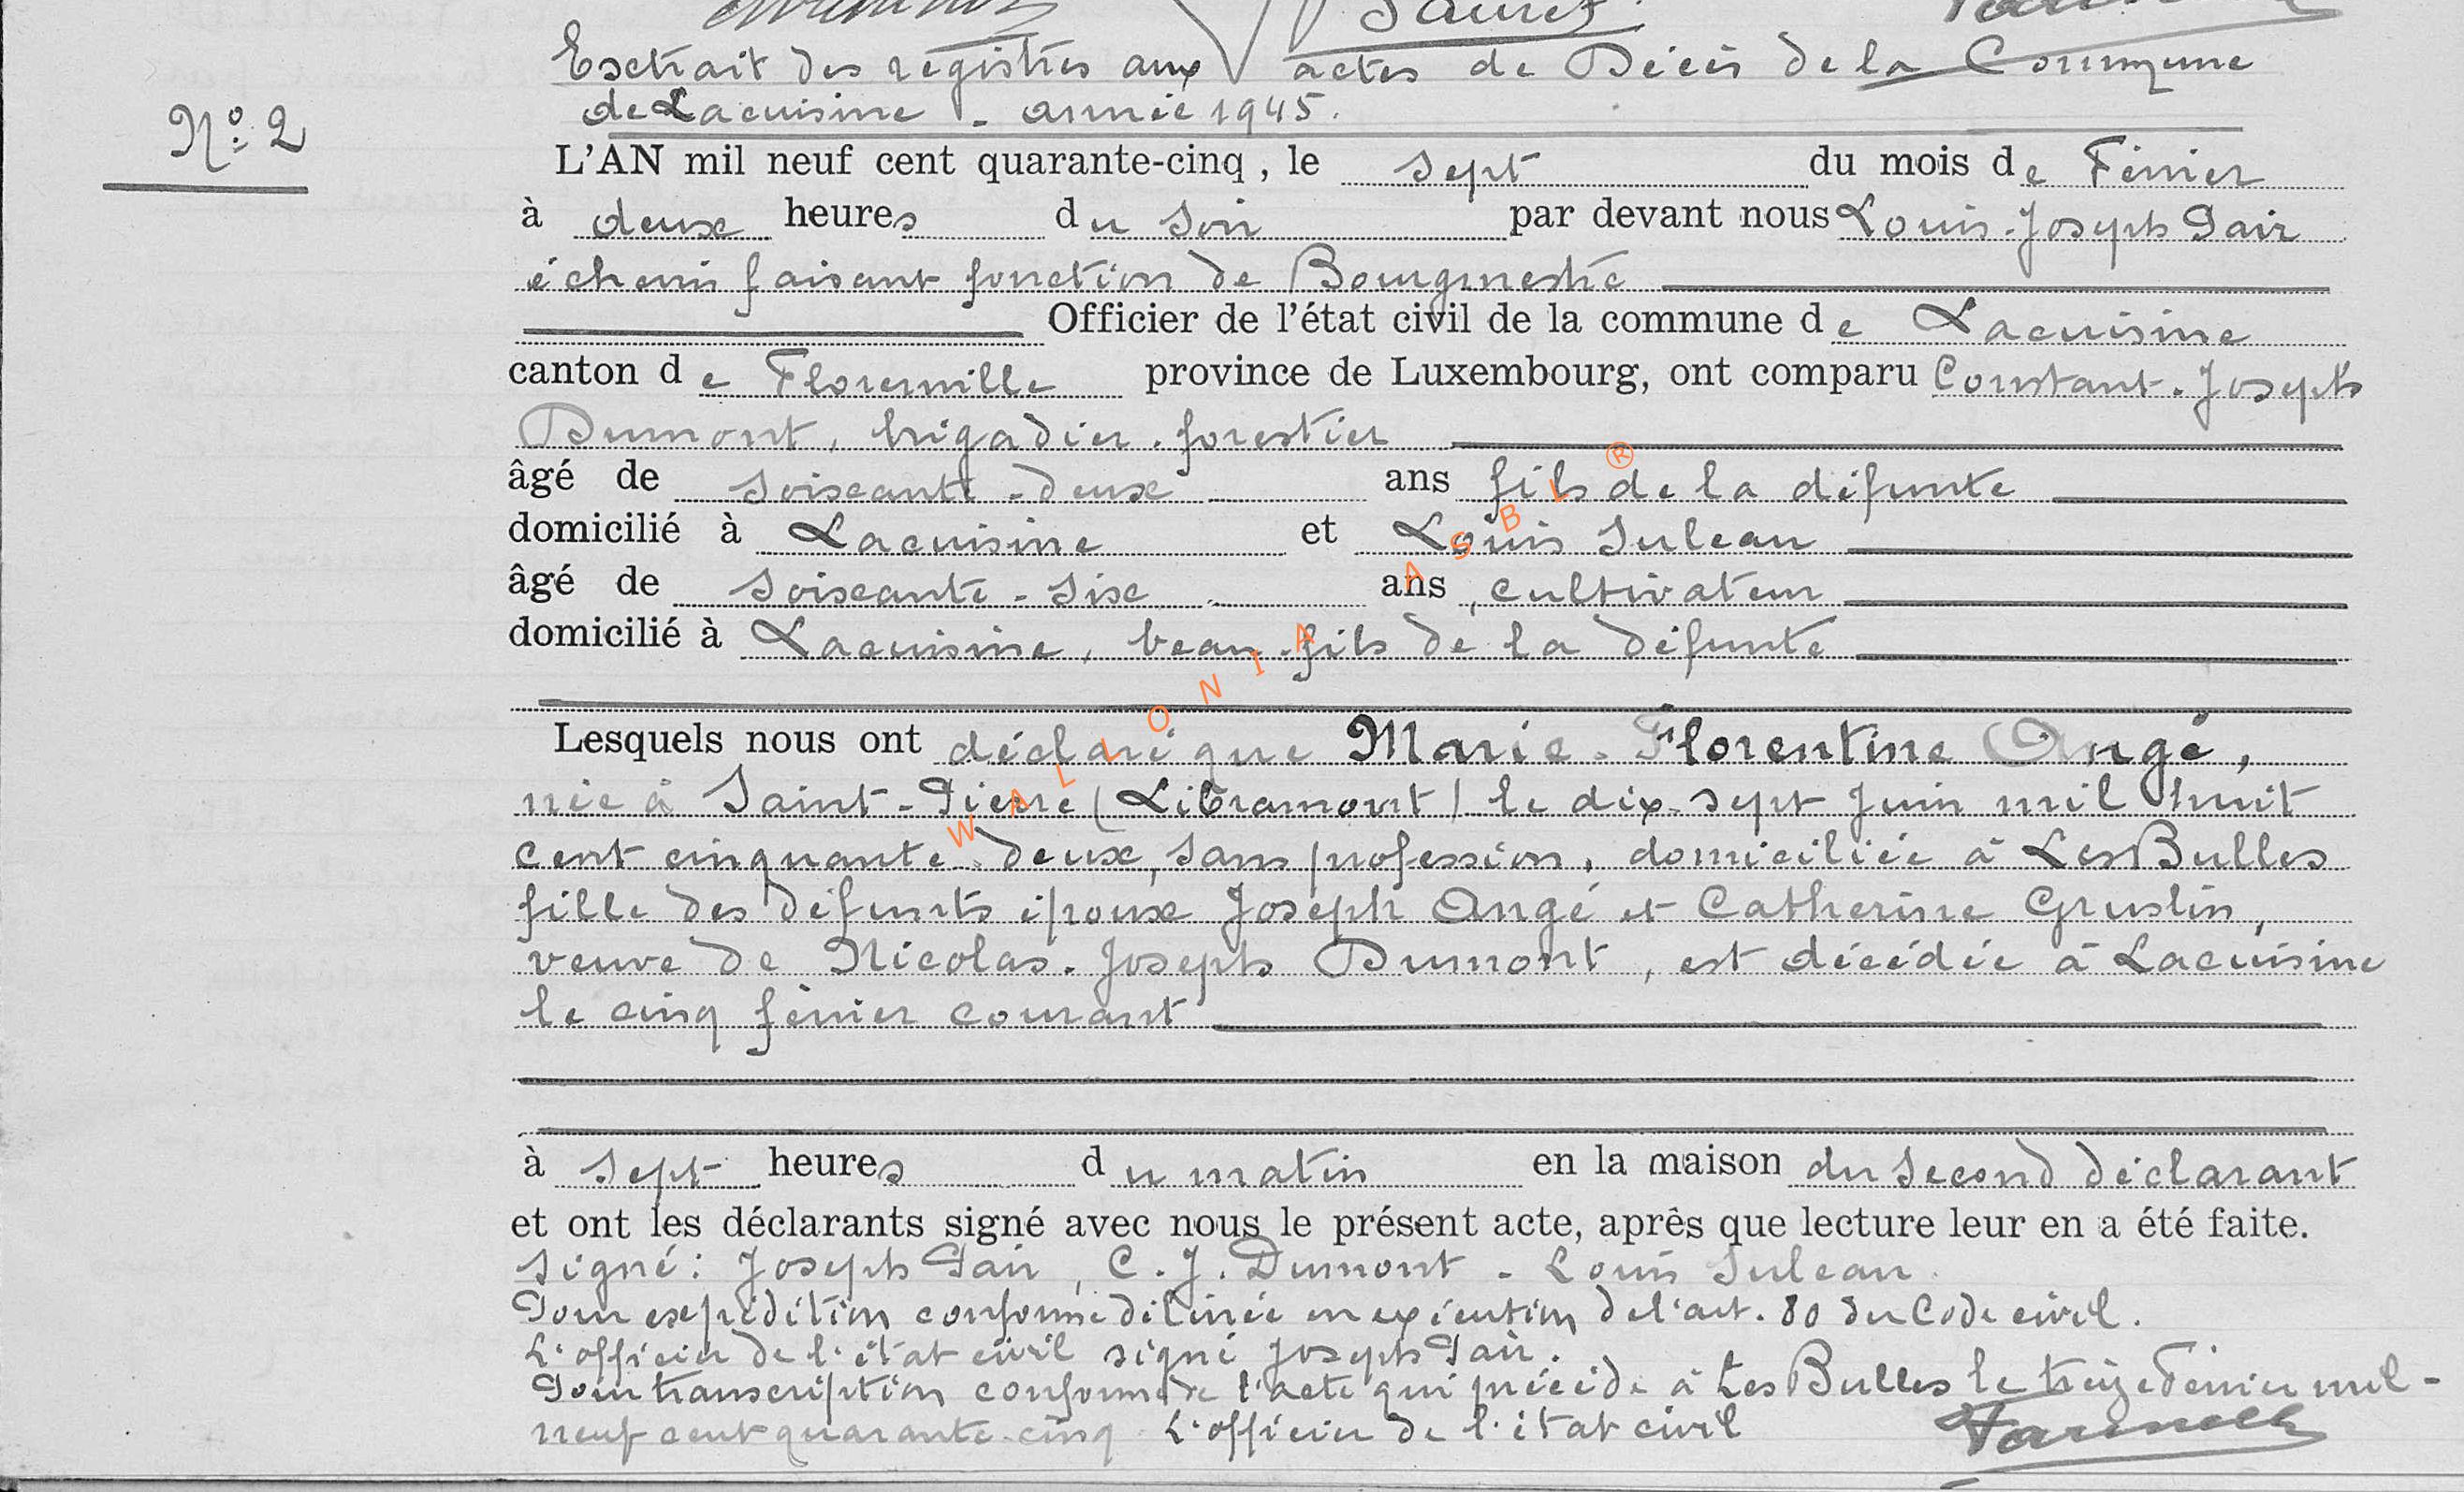 Sauret
Extrait des registres aux actes de Décès de la Commune
de Lacuisine - année 1945.
Nº 2
L'AN mil neuf cent quarante-cinq, le sept du mois de Février
à deux heures du soir par devant nous Louis-Joseph Pair
échevin faisant fonction de Bourgmestre
Officier de l'état civil de la commune de Lacuisine
canton de Florenville province de Luxembourg, ont comparu Constant-Joseph
Dumont, brigadier-forestier
âgé de soixante-deux ans fils de la défunte
domicilié à Lacuisine et Louis Suleau
âgé de soixante-six ans, cultivateur
domicilié à Lacuisine, beau-fils de la défunte
Lesquels nous ont déclaré que Marie-Florentine Angé,
née à Saint-Pierre (Libramont) le dix-sept Juin mil huit
cent cinquante-deux, sans profession, domiciliée à Les Bulles
fille des défunts époux Joseph Angé et Catherine Gruslin,
veuve de Nicolas-Joseph Dumont, est décédée à Lacuisine
le cinq février courant
à sept heures du matin en la maison du second déclarant
et ont les déclarants signé avec nous le présent acte, après que lecture leur en a été faite.
Signé: Joseph Pair, C. J. Dumont - Louis Suleau.
Pour expédition conforme délivrée en exécution de l'art. 80 du Code civil.
L'officier de l'état civil signé Joseph Pair.
Pour transcription conforme de l'acte qui précède à Les Bulles le treize Février mil-
neuf cent quarante-cinq L'officier de l'état civil
WALLONIA ASBL ®